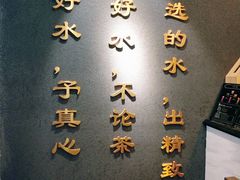 选的水,出精致
好水,不论茶
好水,予真心